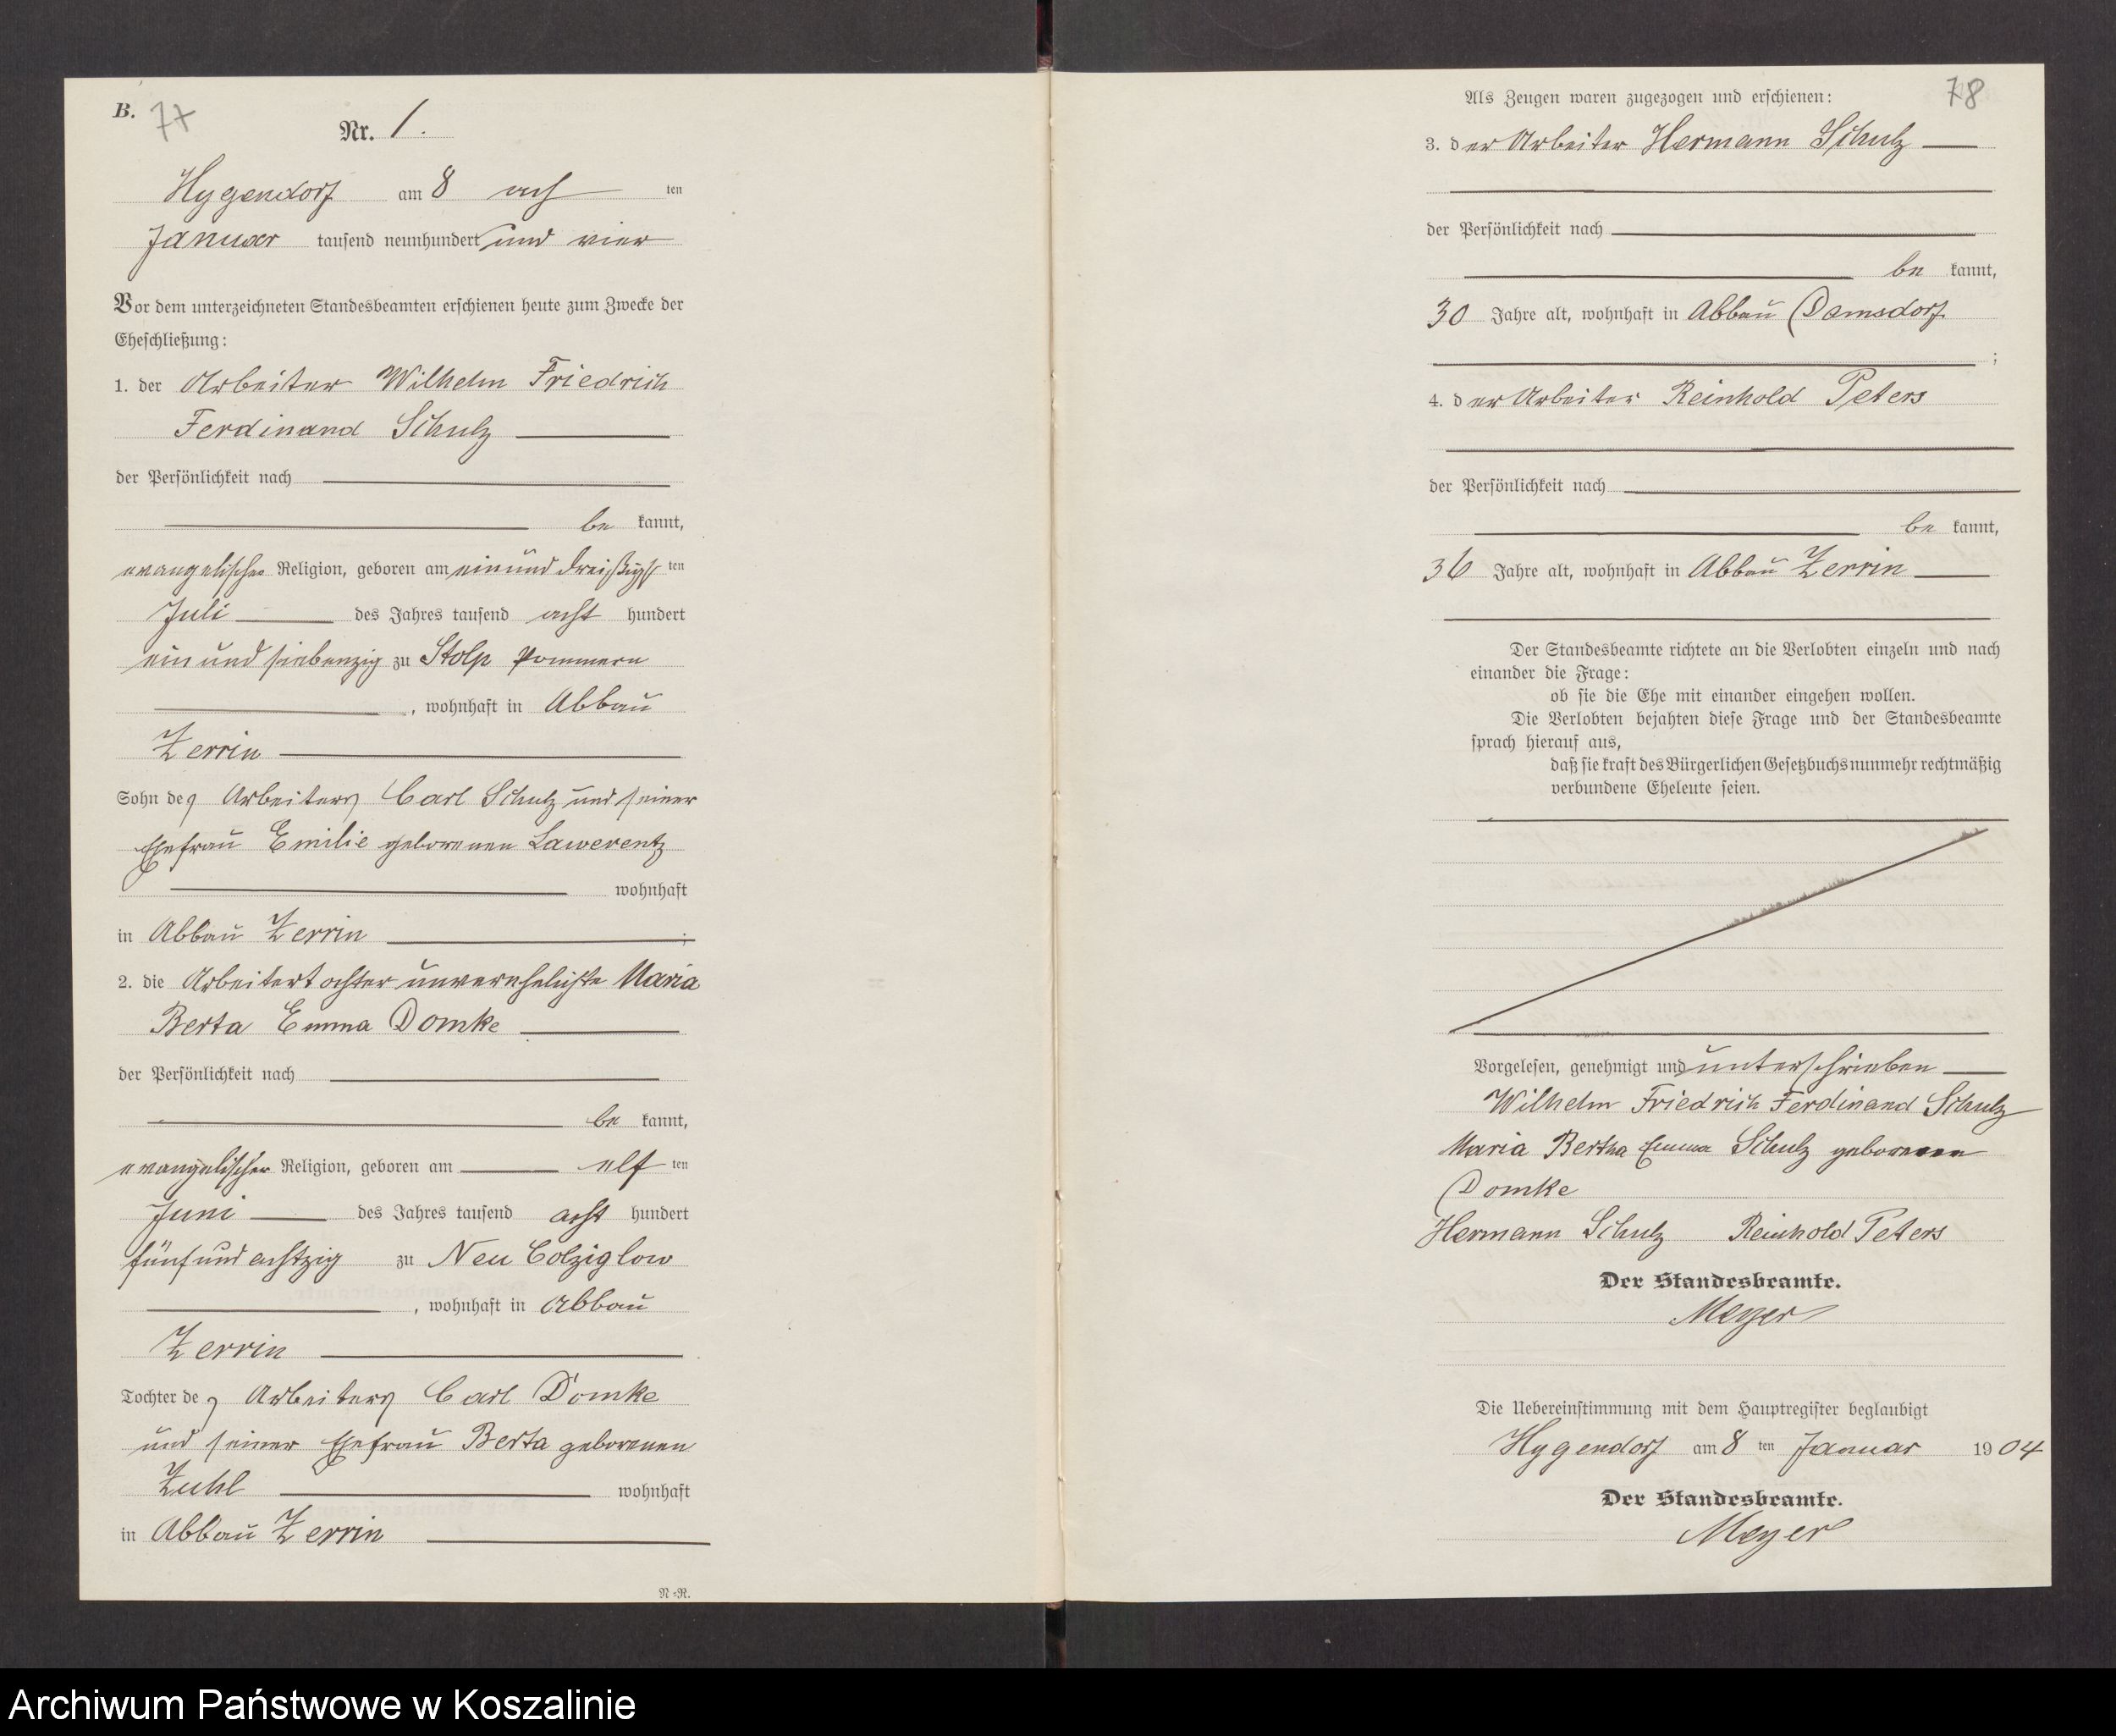 B. 77
Nr. 1.
Hygendorf am 8 ach ten
Januar tausend neunhundert und vier
Vor dem unterzeichneten Standesbeamten erschienen heute zum Zwecke der
Eheschließung:
1. der Arbeiter Wilhelm Friedrich
Ferdinand Schulz
der Persönlichkeit nach
be kannt,
evangelischer Religion, geboren am ein und dreißigs ten
Juli des Jahres tausend acht hundert
ein und siebenzig zu Stolp Pommern
, wohnhaft in Abbau
Zerrin
Sohn des Arbeiters Carl Schulz und seiner
Ehefrau Emilie geborenen Lawerentz
wohnhaft
in Abbau Zerrin ;
2. die Arbeitertochter unverehelichte Maria
Berta Emma Domke
der Persönlichkeit nach
be kannt,
evangelischer Religion, geboren am elf ten
Juni des Jahres tausend acht hundert
fünf und achtzig zu Neu Colziglow
, wohnhaft in Abbau
Zerrin
Tochter des Arbeiters Carl Domke
und seiner Ehefrau Berta geborenen
Zuhl wohnhaft
in Abbau Zerrin
N=R.
78
Als Zeugen waren zugezogen und erschienen:
3. der Arbeiter Hermann Schulz
der Persönlichkeit nach
be kannt,
30 Jahre alt, wohnhaft in Abbau Damsdorf
;
4. der Arbeiter Reinhold Peters
der Persönlichkeit nach
be kannt,
36 Jahre alt, wohnhaft in Abbau Zerrin
Der Standesbeamte richtete an die Verlobten einzeln und nach
einander die Frage:
ob sie die Ehe mit einander eingehen wollen.
Die Verlobten bejahten diese Frage und der Standesbeamte
sprach hierauf aus,
daß sie kraft des Bürgerlichen Gesetzbuchs nunmehr rechtmäßig
verbundene Eheleute seien.
Vorgelesen, genehmigt und unterschrieben
Wilhelm Friedrich Ferdinand Schulz
Maria Bertha Emma Schulz geborene
Domke
Hermann Schulz Reinhold Peters
Der Standesbeamte.
Meyer
Die Uebereinstimmung mit dem Hauptregister beglaubigt
Hygendorf am 8 ten Januar 1904
Der Standesbeamte.
Meyer
Archiwum Państwowe w Koszalinie